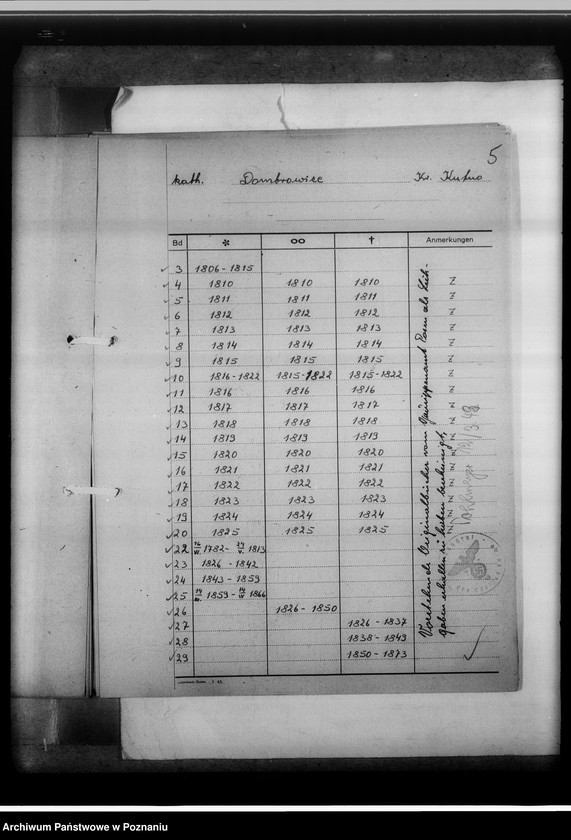 5
kath. Dombrowice Kr. Kutno
Bd * ∞ † Anmerkungen
3 1806 - 1815
4 1810 1810 1810 Z
5 1811 1811 1811 Z
6 1812 1812 1812 Z
7 1813 1813 1813 Z
8 1814 1814 1814 Z
9 1815 1815 1815 Z
10 1816 - 1822 1815 - 1822 1815 - 1822 Z
11 1816 1816 1816 Z
12 1817 1817 1817 Z
13 1818 1818 1818 Z
14 1819 1819 1819 Z
15 1820 1820 1820 Z
16 1821 1821 1821 Z
17 1822 1822 1822 Z
18 1823 1823 1823 Z
19 1824 1824 1824 Z
20 1825 1825 1825 Z
22 1782 - 1813
23 1826 - 1842
24 1843 - 1859
25 1859 - 1866
26 1826 - 1850
27 1826 - 1837
28 1838 - 1849
29 1850 - 1873
Vorstehende Originalbücher vom Gausippenamt Posen als Leih-
gaben erhalten zu haben bescheinigt,
Archiwum Państwowe w Poznaniu